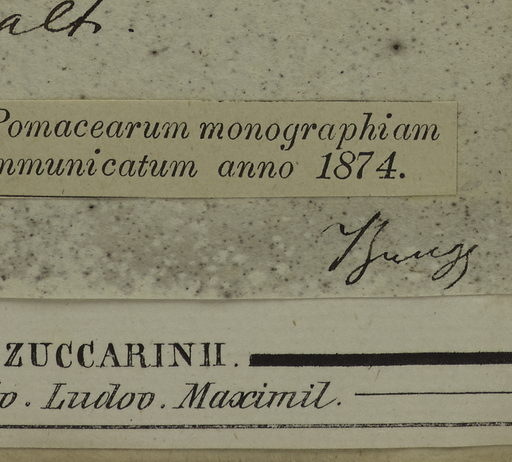 alt.
Pomacearum monographiam
mmunicatum anno 1874.
Bunge
ZUCCARINII.
o. Ludov. Maximil.